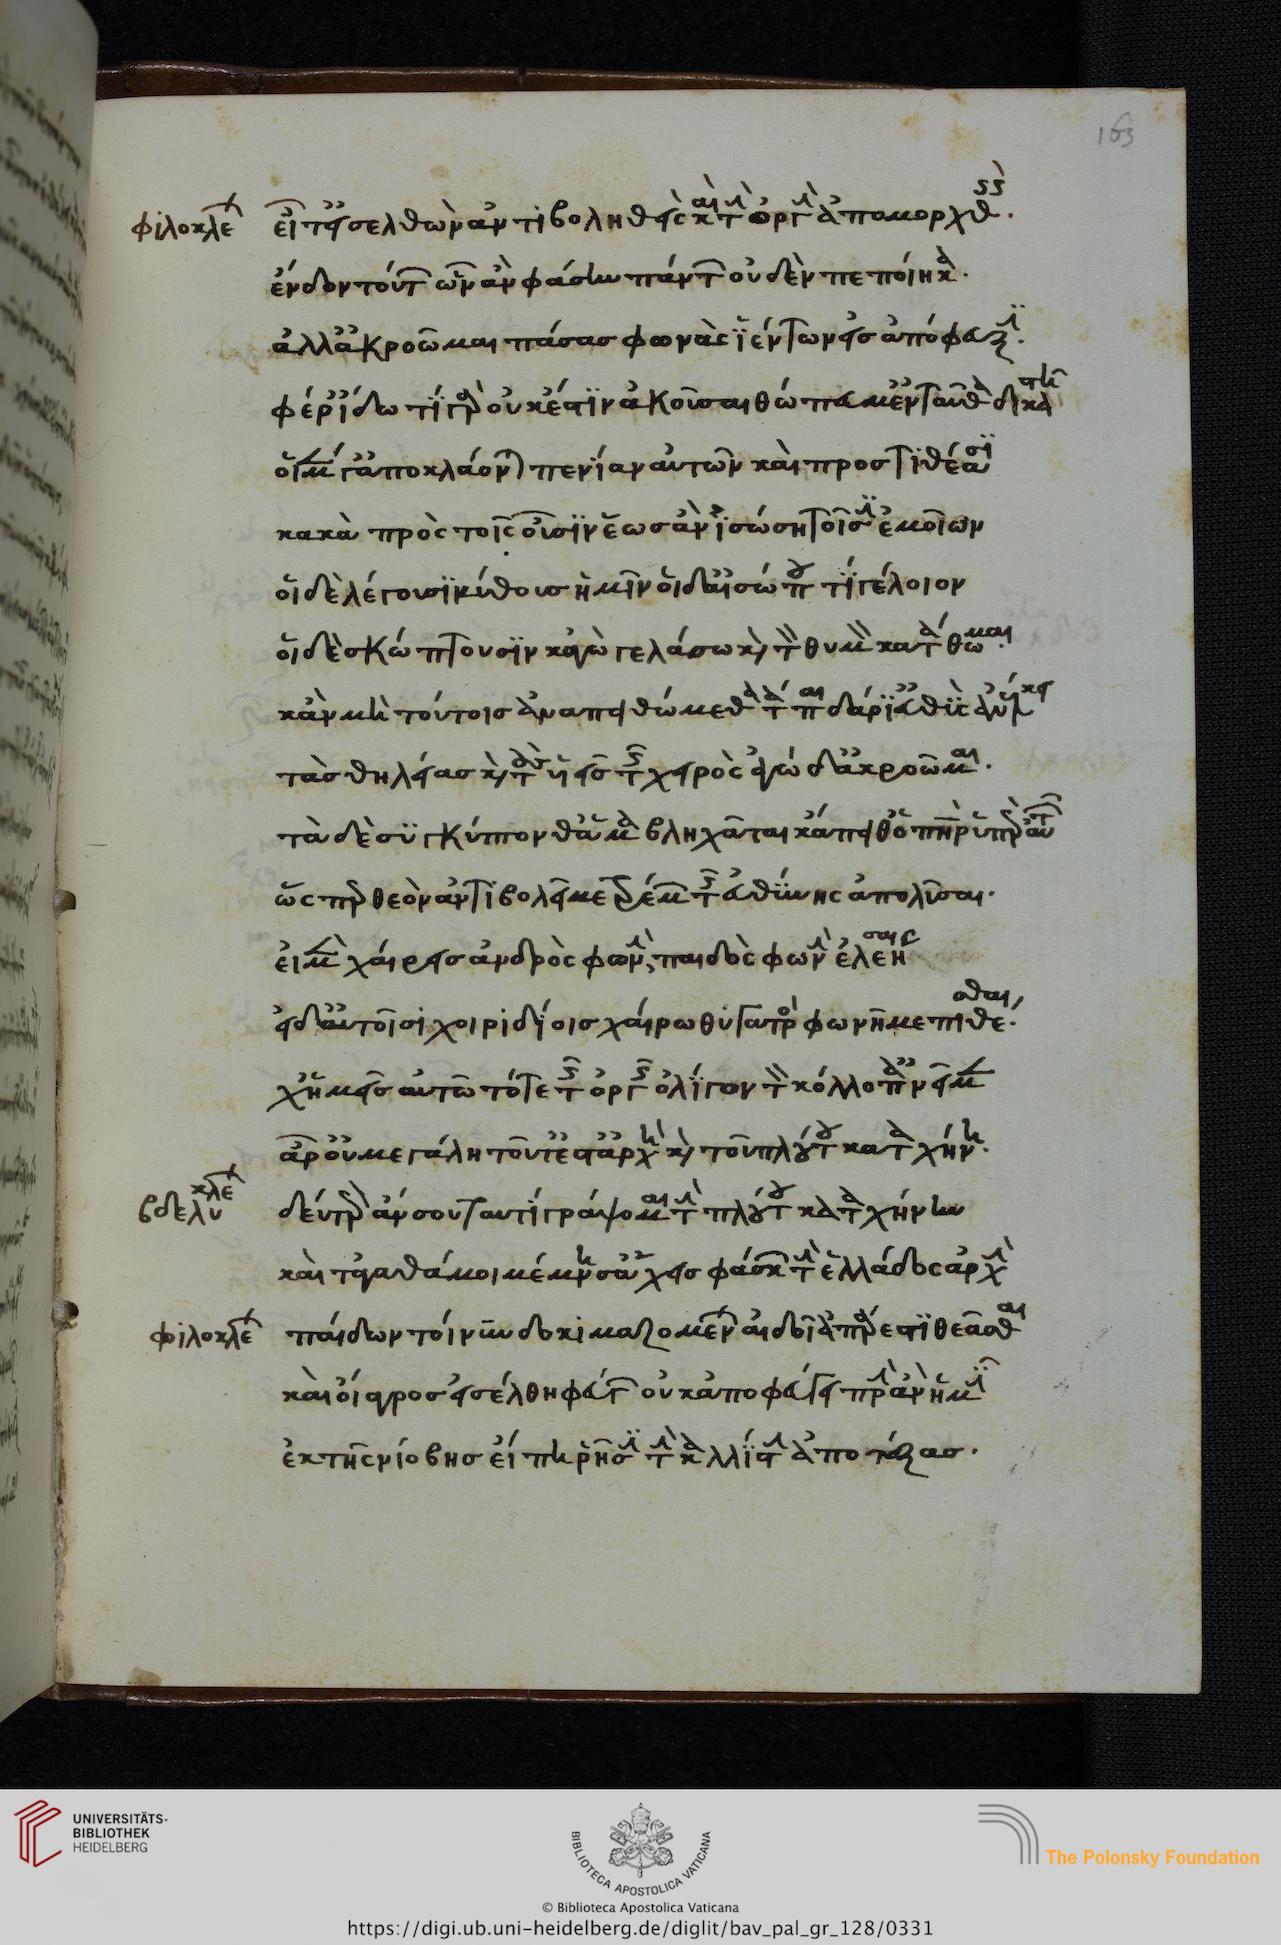 163
φιλοκλέ εἶτ' εἰσελθὼν ἀντιβοληθεὶς καὶ τὴν ὀργὴν ἀπομορχθείς.
ἔνδον τούτων ὧν ἂν φάσκω πάντων οὐδὲν πεποίηκα.
ἀλλ' ἀκροῶμαι πάσας φωνὰς ἱέντων εἰς ἀπόφευξιν.
φέρ' ἴδω τί γὰρ οὐκ ἔστιν ἀκοῦσαι θώπευμ' ἐνταῦθα δικαστῇ
οἱ μέν γ' ἀποκλάονται πενίαν αὐτῶν καὶ προστιθέασι
κακὰ πρὸς τοῖς οὖσιν ἕως ἂν ἰσώσῃ τοῖσιν ἐμοῖσιν
οἱ δὲ λέγουσι μύθους ἡμῖν οἱ δ' αἰσώπου τι γέλοιον
οἱ δὲ σκώπτουσιν κἀγὼ γελάσω καὶ τὸν θυμὸν καταθῶμαι.
κἂν μὴ τούτοις ἀναπειθώμεθα τὰ παιδάρι' εὐθὺς ἀνέλκει
τὰς θηλείας καὶ τοὺς υἱεῖς τῆς χειρὸς ἐγὼ δ' ἀκροῶμαι.
τὰ δὲ συγκύπτονθ' ἅμα βληχᾶται κἄπειθ' ὁ πατὴρ ὑπὲρ αὐτῶν
ὥσπερ θεὸν ἀντιβολεῖ με τρέμων τῆς εὐθύνης ἀπολῦσαι.
εἰ μὲν χαίρεις ἀνδρὸς φωνὴν, παιδὸς φωνὴν ἐλεήσαις
εἰ δ' αὖ τοῖσι χοιριδίοις χαίρω θυγατρὸς φωνῇ με πιθέσθαι.
χἠμεῖς αὐτῷ τότε τῆς ὀργῆς ὀλίγον τὸν κόλλοπ' ἀνεῖμεν
ἆρ' οὐ μεγάλη τοῦτ' ἔστ' ἀρχὴ καὶ τοῦ πλούτου καταχήνη.
βδελυκλέ δεύτερον αὖ σου ταυτὶ γράψομαι τὴν πλούτου καταχήνην
καὶ τἀγαθά μοι μέμνησ' ἅχεις φάσκων τὴν ἑλλάδος ἀρχὴν
φιλοκλέ παίδων τοίνυν δοκιμαζομένων αἰδοῖα πάρεστι θεᾶσθαι
καὶ οἴαγρος εἰσέλθῃ φεύγων οὐκ ἀποφεύγει πρὶν ἂν ἡμῖν
ἐκ τῆς νιόβης εἴπῃ ῥῆσιν τὴν καλλίστην ἀπολέξας.
UNIVERSITÄTS-
BIBLIOTHEK
HEIDELBERG
BIBLIOTECA APOSTOLICA VATICANA
The Polonsky Foundation
© Biblioteca Apostolica Vaticana
https://digi.ub.uni-heidelberg.de/diglit/bav_pal_gr_128/0331